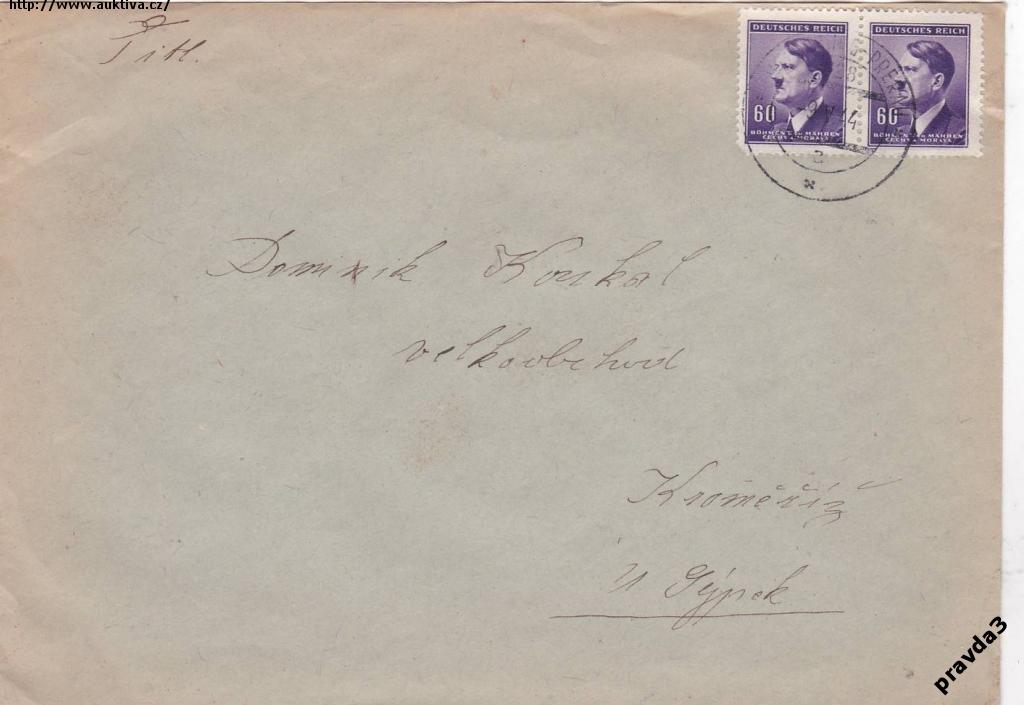 http://www.auktiva.cz/
Titl.
DEUTSCHES REICH DEUTSCHES REICH
60 60
BÖHMEN u. MÄHREN BÖHMEN u. MÄHREN
ČECHY a MORAVA ČECHY a MORAVA
Dominik Koukal
velkoobchod
Kroměříž
U Sýpek
pravda3